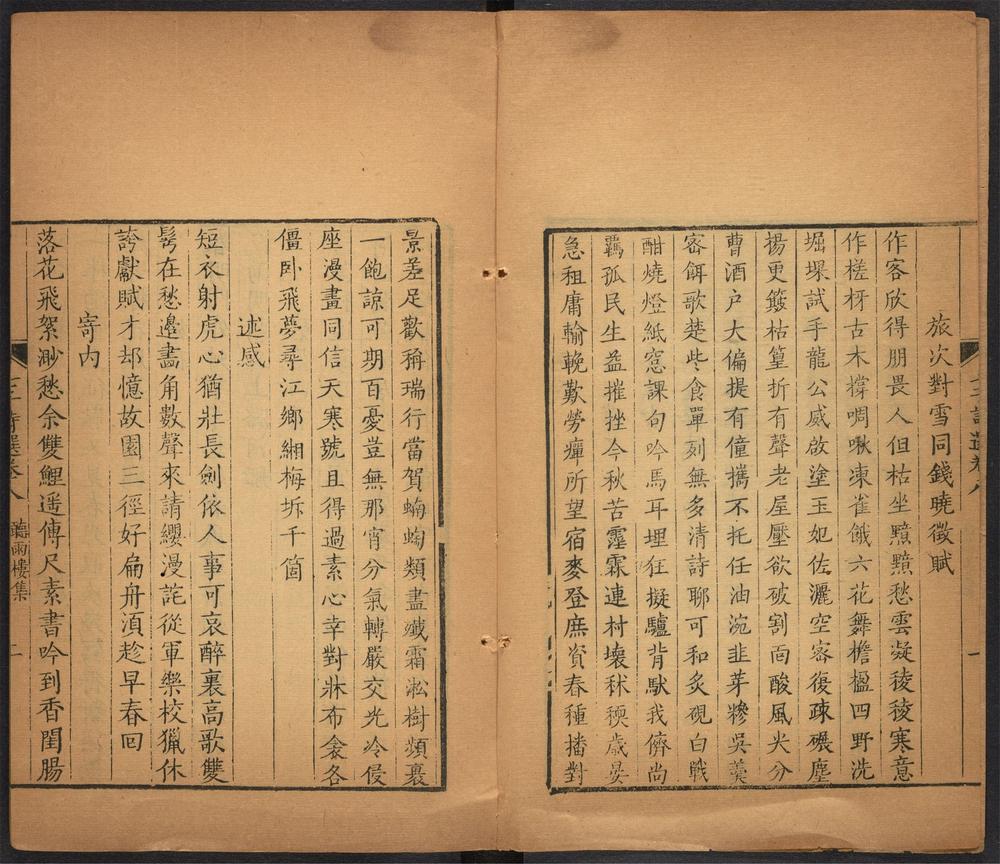 旅次對雪同錢曉徵賦
作客欣得朋畏人但枯坐黯黯愁雲凝稜稜寒意
作槎枒古木撐啁啾凍雀餓六花舞檐楹四野洗
堀堁試手龍公威啟塗玉妃佐灑空密復疎碾塵
揚更簸枯篁折有聲老屋壓欲破割面酸風尖分
曹酒户大偏提有僮攜不托任油涴韭芽糝吳羹
密餌歌楚些食單刻無多清詩聊可和炙硯白戰
酣燒燈紙窓課句吟馬耳埋狂擬驢背馱我儕尚
羈孤民生益摧挫今秋苦霪霖連村壊秫稬歲晏
急租庸輸輓歎勞癉所望宿麥登庶資春種播對
景差足歡稱瑞行當賀蝻蜪類盡殱霜淞樹頻裹
一飽諒可期百憂豈無那宵分氣轉嚴交光冷侵
座漫畫同信天寒號且得過素心幸對牀布衾各
僵卧飛夢尋江鄉緗梅坼千箇
述感
短衣射虎心猶壯長劍依人事可哀醉裏高歌雙
髩在愁邊畫角數聲來請纓漫詫從軍樂校獵休
誇獻賦才却憶故園三徑好扁舟湏趁早春回
寄内
落花飛絮渺愁余雙鯉遥傳尺素書吟到香閨腸
聽雨樓集
二